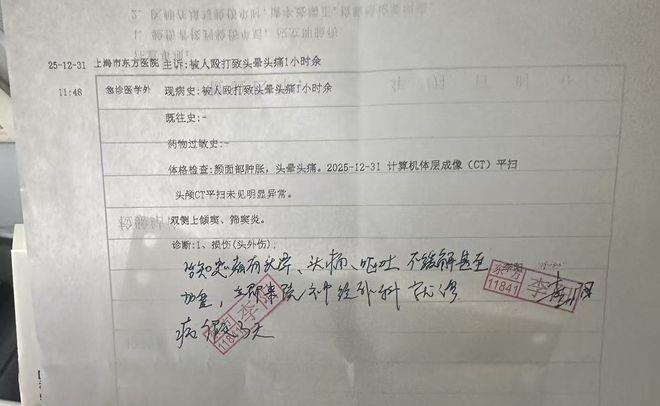 25-12-31 上海市东方医院 主诉:被人殴打致头晕头痛1小时余
11:48 急诊医学外 现病史:被人殴打致头晕头痛1小时余
既往史:-
药物过敏史:-
体格检查:颜面部肿胀，头晕头痛。2025-12-31 计算机体层成像（CT）平扫
头颅CT平扫未见明显异常。
双侧上颌窦、筛窦炎。
诊断:1、损伤(头外伤);
告知患者有头晕、头痛、呕吐 不缓解甚至
加重，立即来院神经外科就诊
11841
病假3天